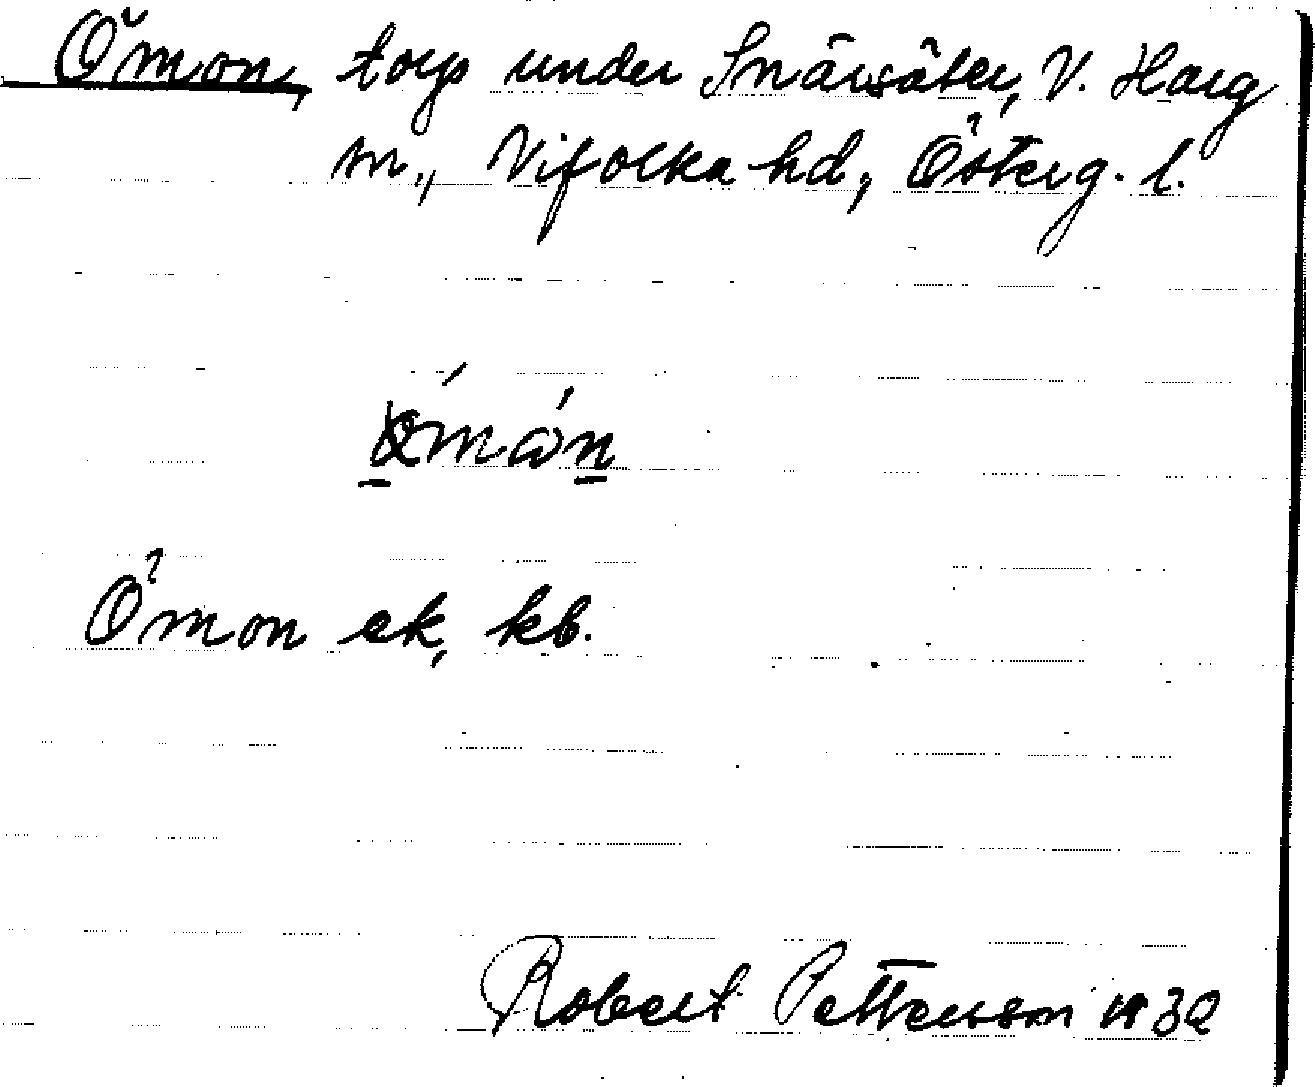 Ömon, torp under Snärsäter, V. Harg
sn., Vifolka hd, Österg. l.
Ömon ek, kb.
Robert Pettersson 1932